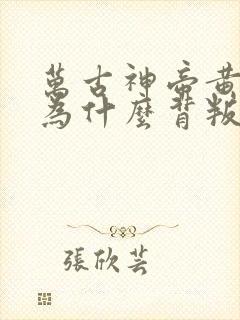 萬古神帝黄
為什麼背叛
張欣芸